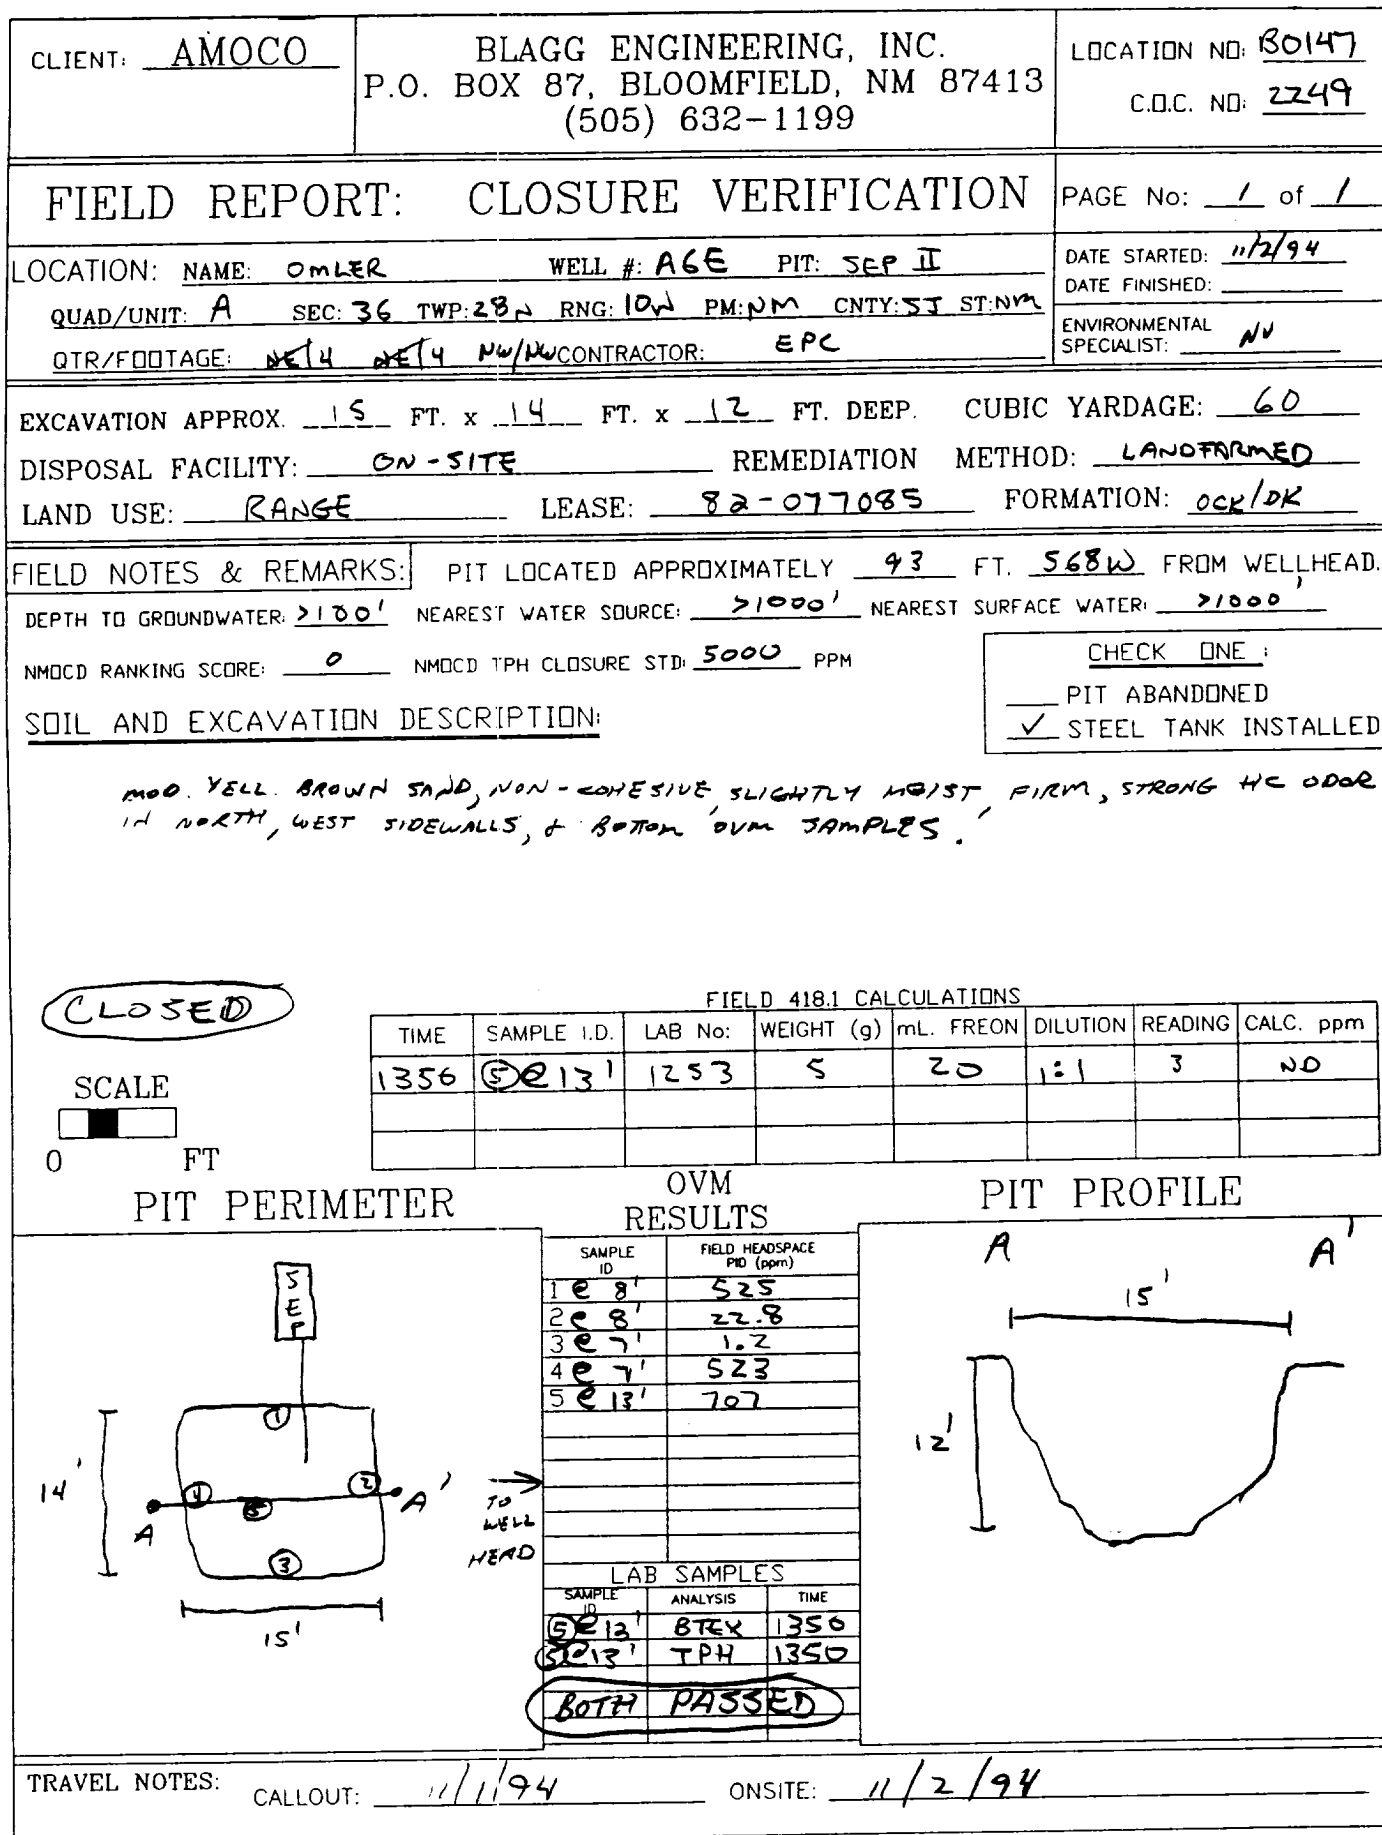 CLIENT: AMOCO
BLAGG ENGINEERING, INC.
P.O. BOX 87, BLOOMFIELD, NM 87413
(505) 632-1199
LOCATION NO: B0147
C.O.C. NO: 2249
FIELD REPORT: CLOSURE VERIFICATION
PAGE No: 1 of 1
LOCATION: NAME: OMLER WELL #: A6E PIT: SEP II
QUAD/UNIT: A SEC: 36 TWP: 28N RNG: 10W PM: NM CNTY: SJ ST: NM
QTR/FOOTAGE: NE/4 NE/4 NW/NW CONTRACTOR: EPC
DATE STARTED: 11/2/94
DATE FINISHED:
ENVIRONMENTAL
SPECIALIST: NV
EXCAVATION APPROX. 15 FT. x 14 FT. x 12 FT. DEEP. CUBIC YARDAGE: 60
DISPOSAL FACILITY: ON-SITE REMEDIATION METHOD: LANDFARMED
LAND USE: RANGE LEASE: 82-077085 FORMATION: OCK/DK
FIELD NOTES & REMARKS: PIT LOCATED APPROXIMATELY 93 FT. S68W FROM WELLHEAD.
DEPTH TO GROUNDWATER: >100' NEAREST WATER SOURCE: >1000' NEAREST SURFACE WATER: >1000'
NMOCD RANKING SCORE: 0 NMOCD TPH CLOSURE STD: 5000 PPM
CHECK ONE :
PIT ABANDONED
✓ STEEL TANK INSTALLED
SOIL AND EXCAVATION DESCRIPTION:
MOD. YELL. BROWN SAND, NON-COHESIVE, SLIGHTLY MOIST, FIRM, STRONG HC ODOR
IN NORTH, WEST SIDEWALLS, & BOTTOM OVM SAMPLES.
CLOSED
SCALE
0 FT
FIELD 418.1 CALCULATIONS
TIME SAMPLE I.D. LAB No: WEIGHT (g) mL. FREON DILUTION READING CALC. ppm
1356 ⑤@13' 1253 5 20 1:1 3 ND
PIT PERIMETER
OVM
RESULTS
PIT PROFILE
SAMPLE ID FIELD HEADSPACE PID (ppm)
1 @ 8' 525
2 @ 8' 22.8
3 @ 7' 1.2
4 @ 7' 523
5 @ 13' 707
SEP
①
②
③
④
⑤
14'
15'
A
A'
TO
WELL
HEAD
LAB SAMPLES
SAMPLE ID ANALYSIS TIME
⑤@13' BTEX 1350
⑤@13' TPH 1350
BOTH PASSED
A
A'
15'
12'
TRAVEL NOTES: CALLOUT: 11/1/94 ONSITE: 11/2/94